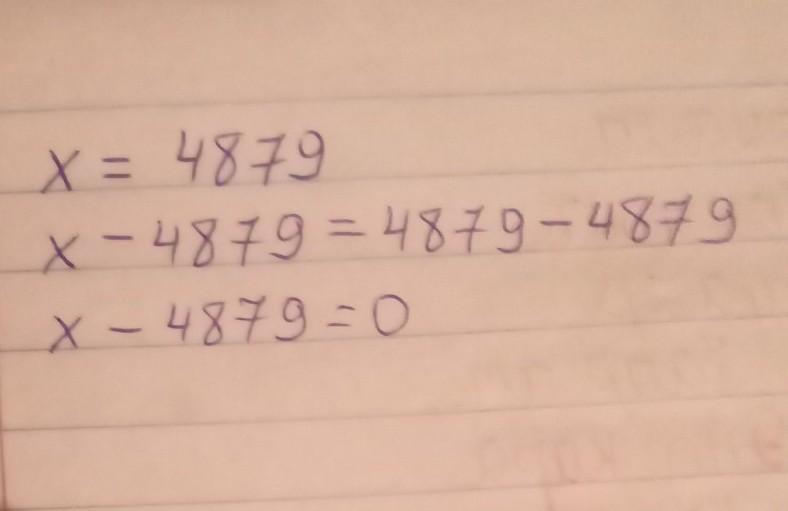 x = 4879
x - 4879 = 4879 - 4879
x - 4879 = 0